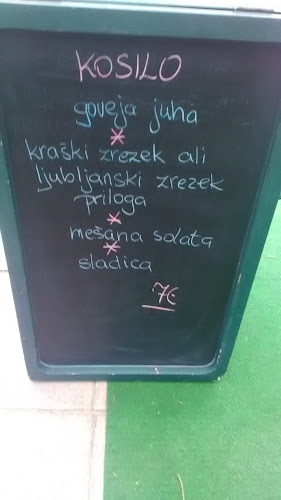 KOSILO
goveja juha
*
kraški zrezek ali
ljubljanski zrezek
priloga
*
mešana solata
*
sladica
7€